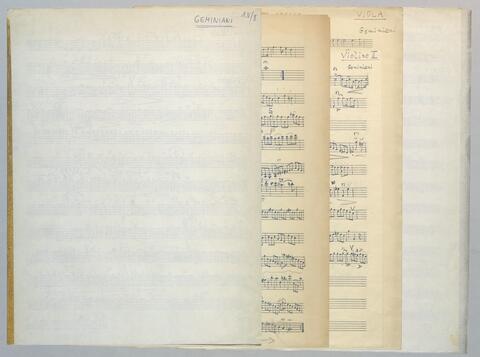 GEMINIANI
VIOLA
Geminiani
Violino II
Geminiani